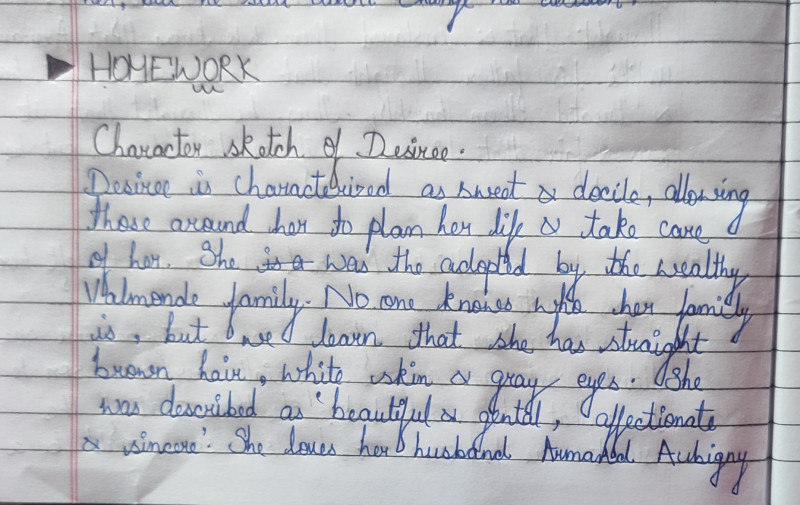 HOMEWORK
Character sketch of Desiree.
Desiree is characterized as sweet & docile, allowing
those around her to plan her life & take care
of her. She is a was the adopted by the wealthy
Valmonde family. No one knows who her family
is, but we learn that she has straight
brown hair, white skin & gray eyes. She
was described as 'beautiful & gental, affectionate
& sincere'. She loves her husband Armand Aubigny